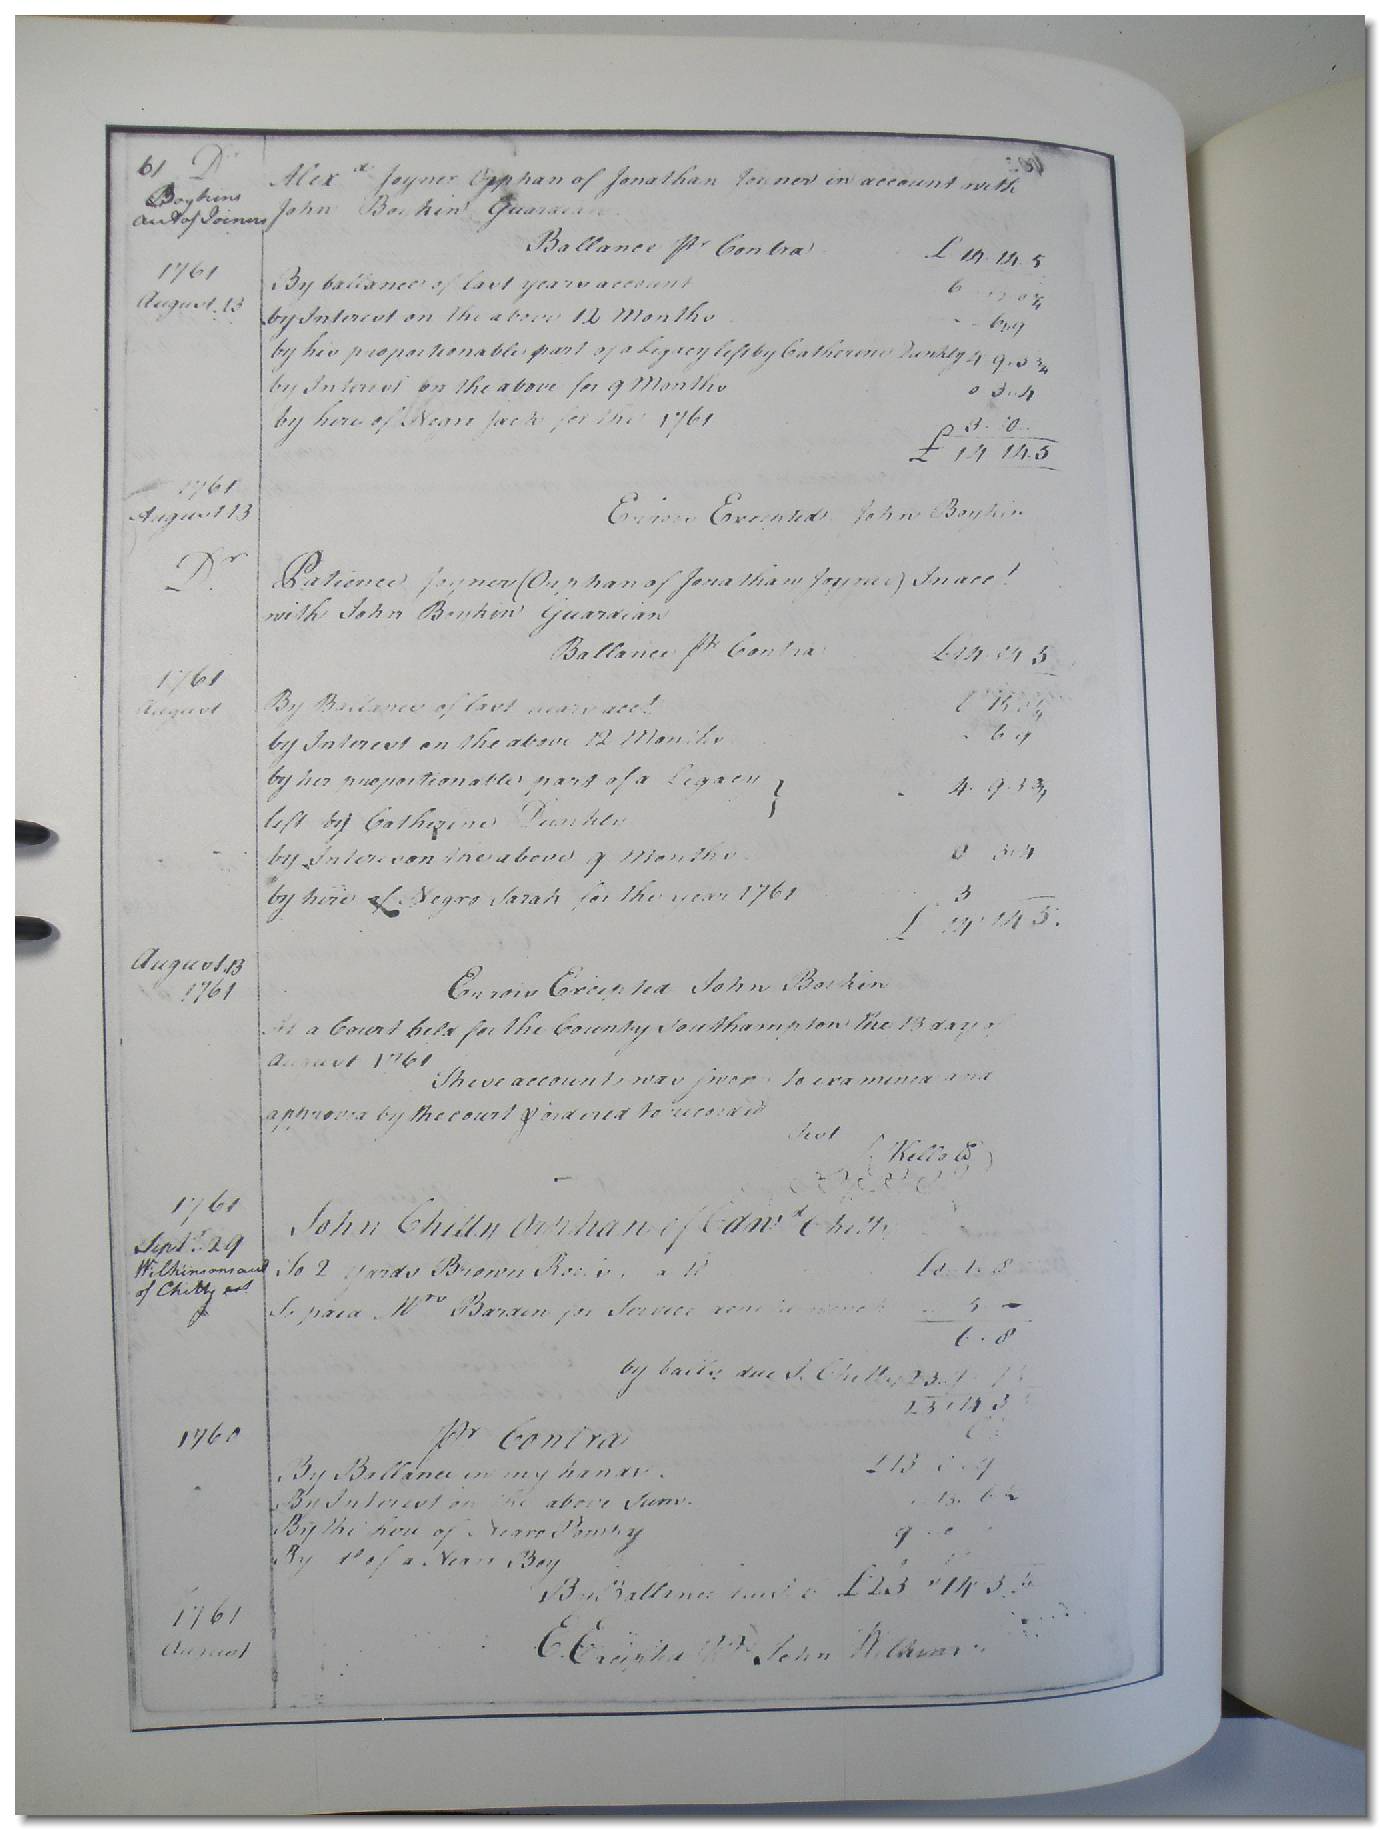 61 Dr
Boykins
acct of Joiners
Alexd Joyner Orphan of Jonathan Joyner in account with
John Boykin Guardian
Ballance pr Contra £ 14.14.5
1761
August 13
By ballance of last years account 6
by Interest on the above 12 Months 6.9
by his proportionable part of a Legacy left by Catherine Dunkly 4.9.3¾
by Interest on the above for 9 Months 0 3.4
by hire of Negro Jack for the 1761 3. 0
£ 14 14.5
1761
August 13
Errors Excepted John Boykin
Dr
Patience Joyner (Orphan of Jonathan Joyner) In acct
with John Boykin Guardian
Ballance pr Contra £14.14 5
1761
August
By Ballance of last years acct
by Interest on the above 12 Months 6 9
by her proportionable part of a Legacy } 4. 9.3¾
left by Catherine Dunkly
by Interes on the above 9 Months 0 3.4
by hire of Negro Sarah for the year 1761 3
£ 14 14 5
August 13
1761
Errors Excepted John Boykin
At a Court held for the County Southampton the 13 day of
August 1761
These accounts was sworn to examined and
approved by the court & ordered to record
Test
Kello
1761
Septr 29
Wilkinsons acct
of Chitty est
John Chitty Orphan of Edwd Chitty
To 2 yards Brown 1. 8
To paid Mrs Barden for Service 5 -
6.8
by balla due J. Chitty 23.
23.14 3
1760
pr Contra
By Ballance in my hands £13
By Interest on the above Sum 13. 6½
By the hire of Negro Pompy 9 0
By Do of a Negro Boy
By Ballance £23 14 3
1761
August
E. Excepted pr John Wilkinson